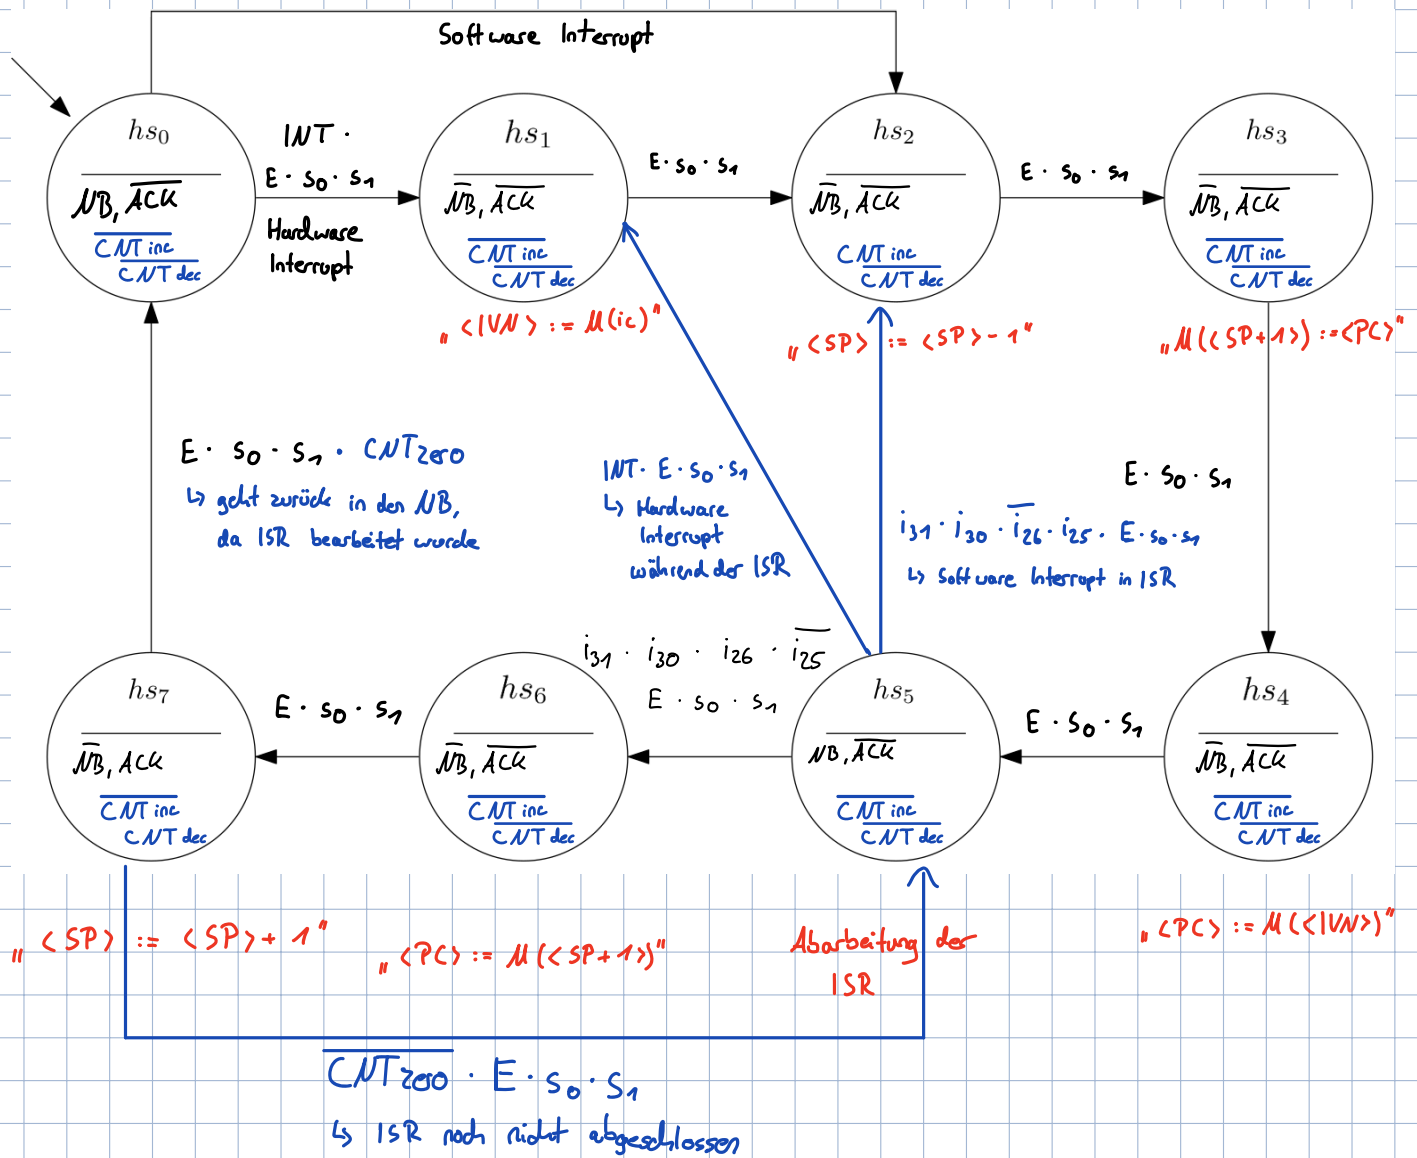 Software Interrupt
hs₀
NB, A̅C̅K̅
C̅N̅T̅ ̅i̅n̅c̅
C̅N̅T̅ ̅d̅e̅c̅
INT ·
E · s₀ · s₁
Hardware
Interrupt
hs₁
N̅B̅, A̅C̅K̅
C̅N̅T̅ ̅i̅n̅c̅
C̅N̅T̅ ̅d̅e̅c̅
E · s₀ · s₁
hs₂
N̅B̅, A̅C̅K̅
CNT inc
C̅N̅T̅ ̅d̅e̅c̅
E · s₀ · s₁
hs₃
N̅B̅, A̅C̅K̅
C̅N̅T̅ ̅i̅n̅c̅
C̅N̅T̅ ̅d̅e̅c̅
„<IVN> := M(ic)"
„<SP> := <SP> - 1"
„M(<SP+1>) := <PC>"
E · s₀ · s₁ · CNTzero
↳ geht zurück in den NB,
da ISR bearbeitet wurde
INT · E · s₀ · s₁
↳ Hardware
Interrupt
während der ISR
i₃₁ · i₃₀ · i̅₂₆ · i₂₅ · E · s₀ · s₁
↳ Software Interrupt in ISR
E · s₀ · s₁
hs₇
N̅B̅, ACK
C̅N̅T̅ ̅i̅n̅c̅
CNT dec
E · s₀ · s₁
hs₆
N̅B̅, A̅C̅K̅
C̅N̅T̅ ̅i̅n̅c̅
C̅N̅T̅ ̅d̅e̅c̅
i₃₁ · i₃₀ · i₂₆ · i̅₂₅
E · s₀ · s₁
hs₅
NB, A̅C̅K̅
C̅N̅T̅ ̅i̅n̅c̅
C̅N̅T̅ ̅d̅e̅c̅
E · s₀ · s₁
hs₄
N̅B̅, A̅C̅K̅
C̅N̅T̅ ̅i̅n̅c̅
C̅N̅T̅ ̅d̅e̅c̅
„<SP> := <SP> + 1"
„<PC> := M(<SP+1>)"
Abarbeitung der
ISR
„<PC> := M(<IVN>)"
C̅N̅T̅z̅e̅r̅o̅ · E · s₀ · s₁
↳ ISR noch nicht abgeschlossen